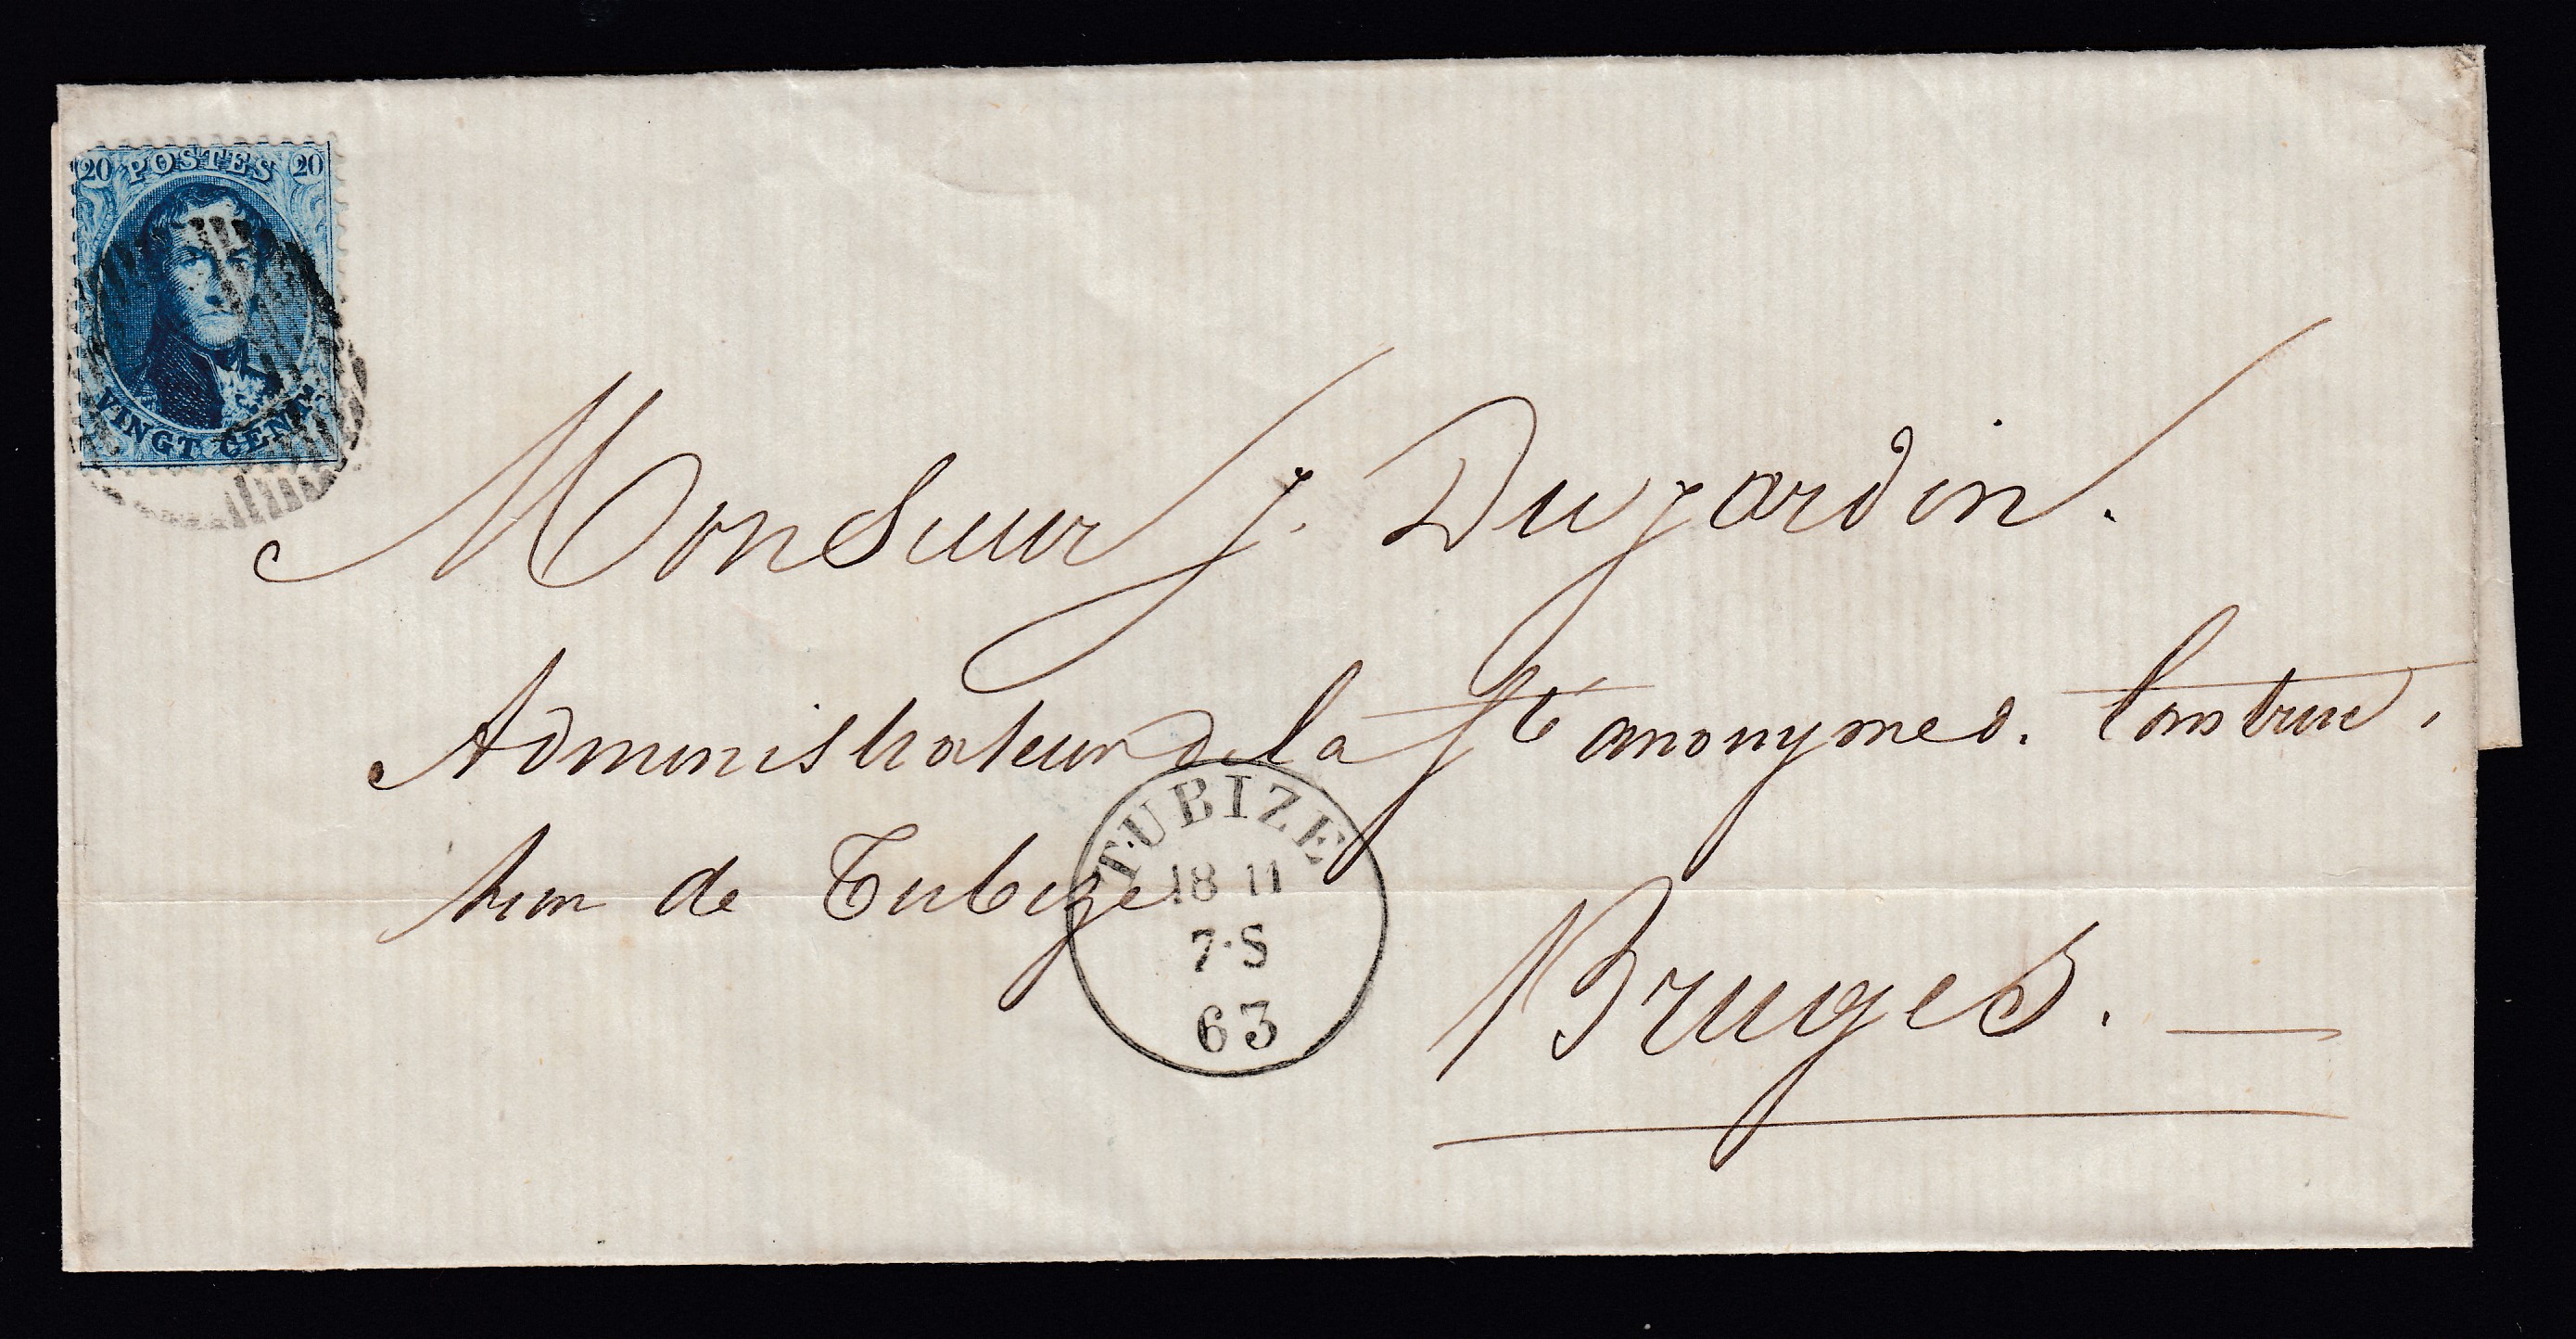 20 POSTES 20
VINGT CENT.
Monsieur J. Dujardin.
Administrateur de la Sté anonyme d. Construc,
tion de Tubize
TUBIZE
18 11
7·S
63
Bruges. —